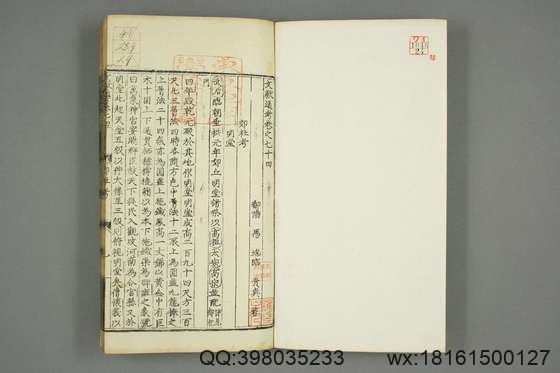 文獻通考卷之七十四
鄱陽 馬 端臨 貴與 著
郊社考
明堂
武后臨朝垂拱元年郊丘明堂諸祭以高祖太宗高宗並配
四年毀乾元殿於其地作明堂明堂成高二百九十四尺方三百
尺凡三層下層法四時各隨方色中層法十二辰上為圓蓋九龍捧之
上層法二十四氣亦為圓蓋上施鐵鳳高一丈飾以黃金中有巨
木十圍上下通貫栭櫨橕㮰藉以為本下施鐵渠為辟雍之象號
曰萬象神宮宴賜群臣赦天下縱民入觀改河南為合宮縣又於
明堂北起天堂五級以貯大像至三級則俯視明堂矣僧懷義以
QQ:398035233
wx:18161500127